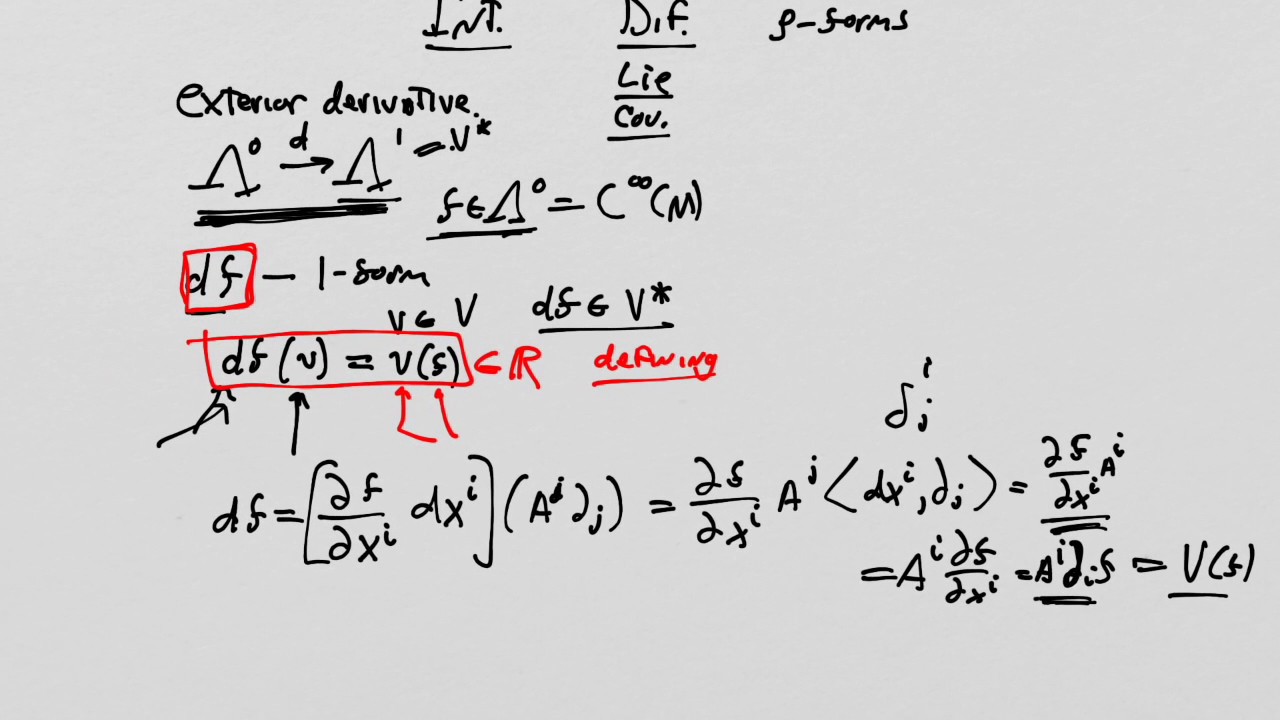 INT. Dif. p-forms
Lie
Cov.
exterior derivative.
Λ⁰ →ᵈ Λ¹ = V*
f ∈ Λ⁰ = C^∞(M)
df — 1-form
v ∈ V df ∈ V*
df(v) = v(f) ∈ ℝ defining
δ^i_j
df = [∂f/∂x^i dx^i](A^j ∂_j) = ∂f/∂x^i A^j ⟨dx^i, ∂_j⟩ = ∂f/∂x^i A^i
= A^i ∂f/∂x^i = A^i ∂_i f = V(f)